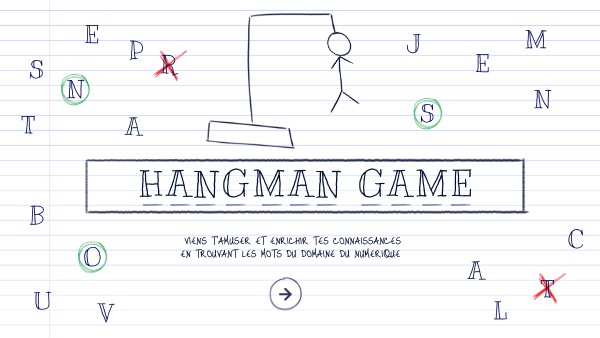 E
P
R
S
N
T
A
J
M
E
N
S
HANGMAN GAME
VIENS T'AMUSER ET ENRICHIR TES CONNAISSANCES
EN TROUVANT LES MOTS DU DOMAINE DU NUMERIQUE
B
O
U
V
C
A
T
L